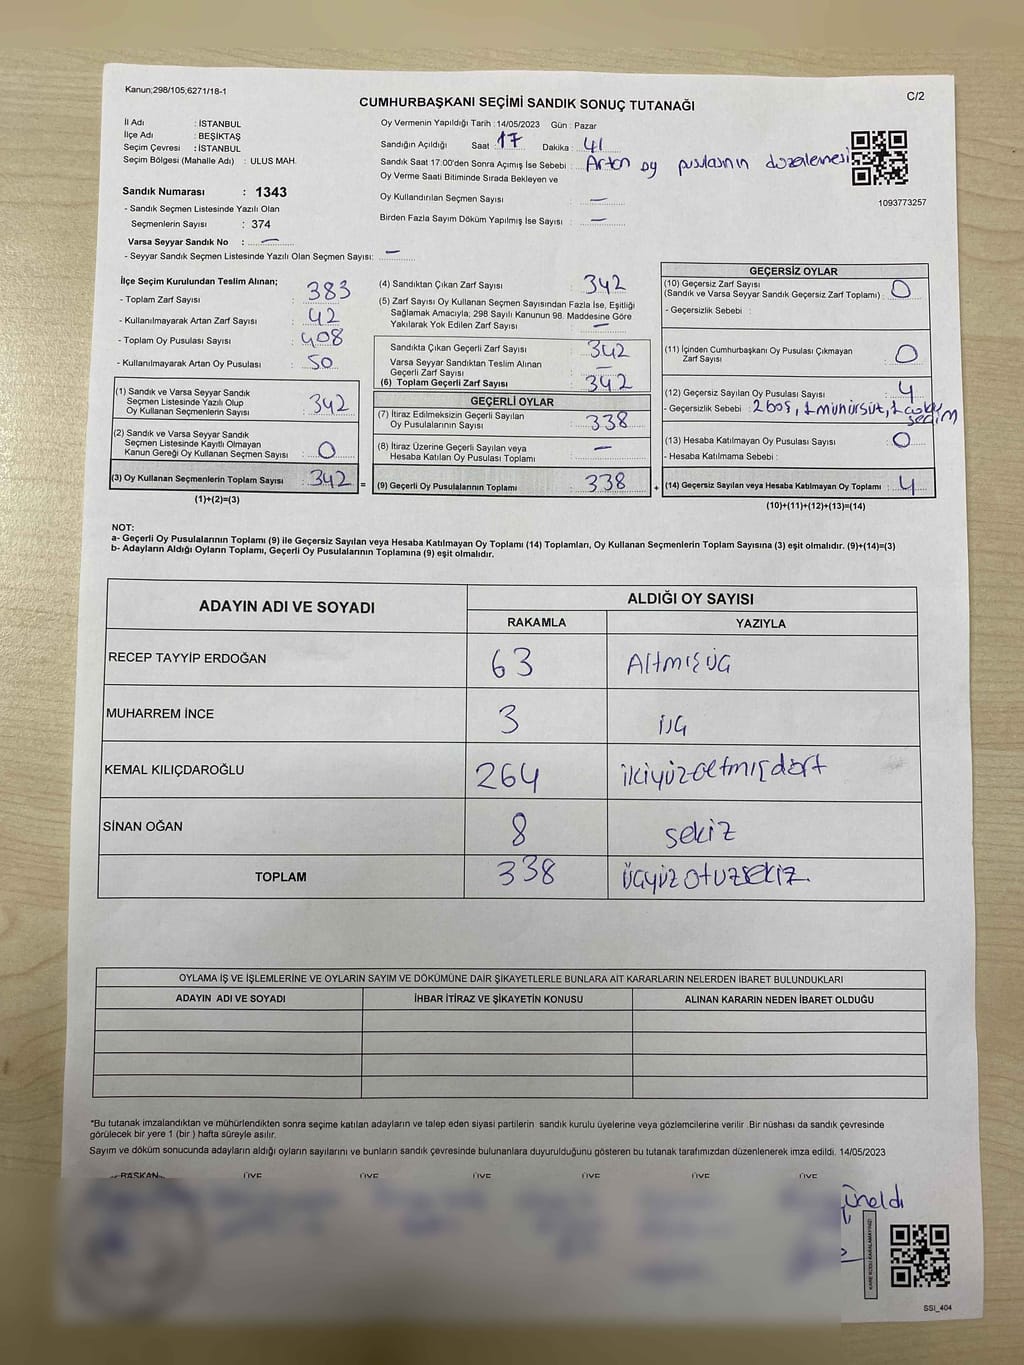 Kanun;298/105;6271/18-1
C/2
CUMHURBAŞKANI SEÇİMİ SANDIK SONUÇ TUTANAĞI
İl Adı : İSTANBUL
İlçe Adı : BEŞİKTAŞ
Seçim Çevresi : İSTANBUL
Seçim Bölgesi (Mahalle Adı) : ULUS MAH.
Sandık Numarası : 1343
- Sandık Seçmen Listesinde Yazılı Olan
Seçmenlerin Sayısı : 374
Varsa Seyyar Sandık No : —
- Seyyar Sandık Seçmen Listesinde Yazılı Olan Seçmen Sayısı: —
Oy Vermenin Yapıldığı Tarih : 14/05/2023 Gün : Pazar
Sandığın Açıldığı Saat : 17 Dakika : 41
Sandık Saat 17:00'den Sonra Açımış İse Sebebi : Artan oy pusulasının düzenlemesi
Oy Verme Saati Bitiminde Sırada Bekleyen ve
Oy Kullandırılan Seçmen Sayısı : —
Birden Fazla Sayım Döküm Yapılmış İse Sayısı : —
1093773257
İlçe Seçim Kurulundan Teslim Alınan;
- Toplam Zarf Sayısı : 383
- Kullanılmayarak Artan Zarf Sayısı : 42
- Toplam Oy Pusulası Sayısı : 408
- Kullanılmayarak Artan Oy Pusulası : 50
(1) Sandık ve Varsa Seyyar Sandık
Seçmen Listesinde Yazılı Olup
Oy Kullanan Seçmenlerin Sayısı : 342
(2) Sandık ve Varsa Seyyar Sandık
Seçmen Listesinde Kayıtlı Olmayan
Kanun Gereği Oy Kullanan Seçmen Sayısı : 0
(3) Oy Kullanan Seçmenlerin Toplam Sayısı : 342 =
(1)+(2)=(3)
(4) Sandıktan Çıkan Zarf Sayısı : 342
(5) Zarf Sayısı Oy Kullanan Seçmen Sayısından Fazla İse, Eşitliği
Sağlamak Amacıyla; 298 Sayılı Kanunun 98. Maddesine Göre
Yakılarak Yok Edilen Zarf Sayısı : —
Sandıkta Çıkan Geçerli Zarf Sayısı : 342
Varsa Seyyar Sandıktan Teslim Alınan
Geçerli Zarf Sayısı : —
(6) Toplam Geçerli Zarf Sayısı : 342
GEÇERLİ OYLAR
(7) İtiraz Edilmeksizin Geçerli Sayılan
Oy Pusulalarının Sayısı : 338
(8) İtiraz Üzerine Geçerli Sayılan veya
Hesaba Katılan Oy Pusulası Toplamı : —
(9) Geçerli Oy Pusulalarının Toplamı : 338 +
GEÇERSİZ OYLAR
(10) Geçersiz Zarf Sayısı
(Sandık ve Varsa Seyyar Sandık Geçersiz Zarf Toplamı) : 0
- Geçersizlik Sebebi :
(11) İçinden Cumhurbaşkanı Oy Pusulası Çıkmayan
Zarf Sayısı : 0
(12) Geçersiz Sayılan Oy Pusulası Sayısı : 4
- Geçersizlik Sebebi : 2 boş, 1 mühürsüz, 1 çoklu
seçim
(13) Hesaba Katılmayan Oy Pusulası Sayısı : 0
- Hesaba Katılmama Sebebi :
(14) Geçersiz Sayılan veya Hesaba Katılmayan Oy Toplamı : 4
(10)+(11)+(12)+(13)=(14)
NOT:
a- Geçerli Oy Pusulalarının Toplamı (9) ile Geçersiz Sayılan veya Hesaba Katılmayan Oy Toplamı (14) Toplamları, Oy Kullanan Seçmenlerin Toplam Sayısına (3) eşit olmalıdır. (9)+(14)=(3)
b- Adayların Aldığı Oyların Toplamı, Geçerli Oy Pusulalarının Toplamına (9) eşit olmalıdır.
ADAYIN ADI VE SOYADI ALDIĞI OY SAYISI
RAKAMLA YAZIYLA
RECEP TAYYİP ERDOĞAN 63 Altmışüç
MUHARREM İNCE 3 üç
KEMAL KILIÇDAROĞLU 264 ikiyüzaltmışdört
SİNAN OĞAN 8 sekiz
TOPLAM 338 üçyüzotuzsekiz.
OYLAMA İŞ VE İŞLEMLERİNE VE OYLARIN SAYIM VE DÖKÜMÜNE DAİR ŞİKAYETLERLE BUNLARA AİT KARARLARIN NELERDEN İBARET BULUNDUKLARI
ADAYIN ADI VE SOYADI İHBAR İTİRAZ VE ŞİKAYETİN KONUSU ALINAN KARARIN NEDEN İBARET OLDUĞU
*Bu tutanak imzalandıktan ve mühürlendikten sonra seçime katılan adayların ve talep eden siyasi partilerin sandık kurulu üyelerine veya gözlemcilerine verilir .Bir nüshası da sandık çevresinde
görülecek bir yere 1 (bir ) hafta süreyle asılır.
Sayım ve döküm sonucunda adayların aldığı oyların sayılarını ve bunların sandık çevresinde bulunanlara duyurulduğunu gösteren bu tutanak tarafımızdan düzenlenerek imza edildi. 14/05/2023
BAŞKAN ÜYE ÜYE ÜYE ÜYE ÜYE
KARE KODU KARALAMAYINIZ!
SSI_404